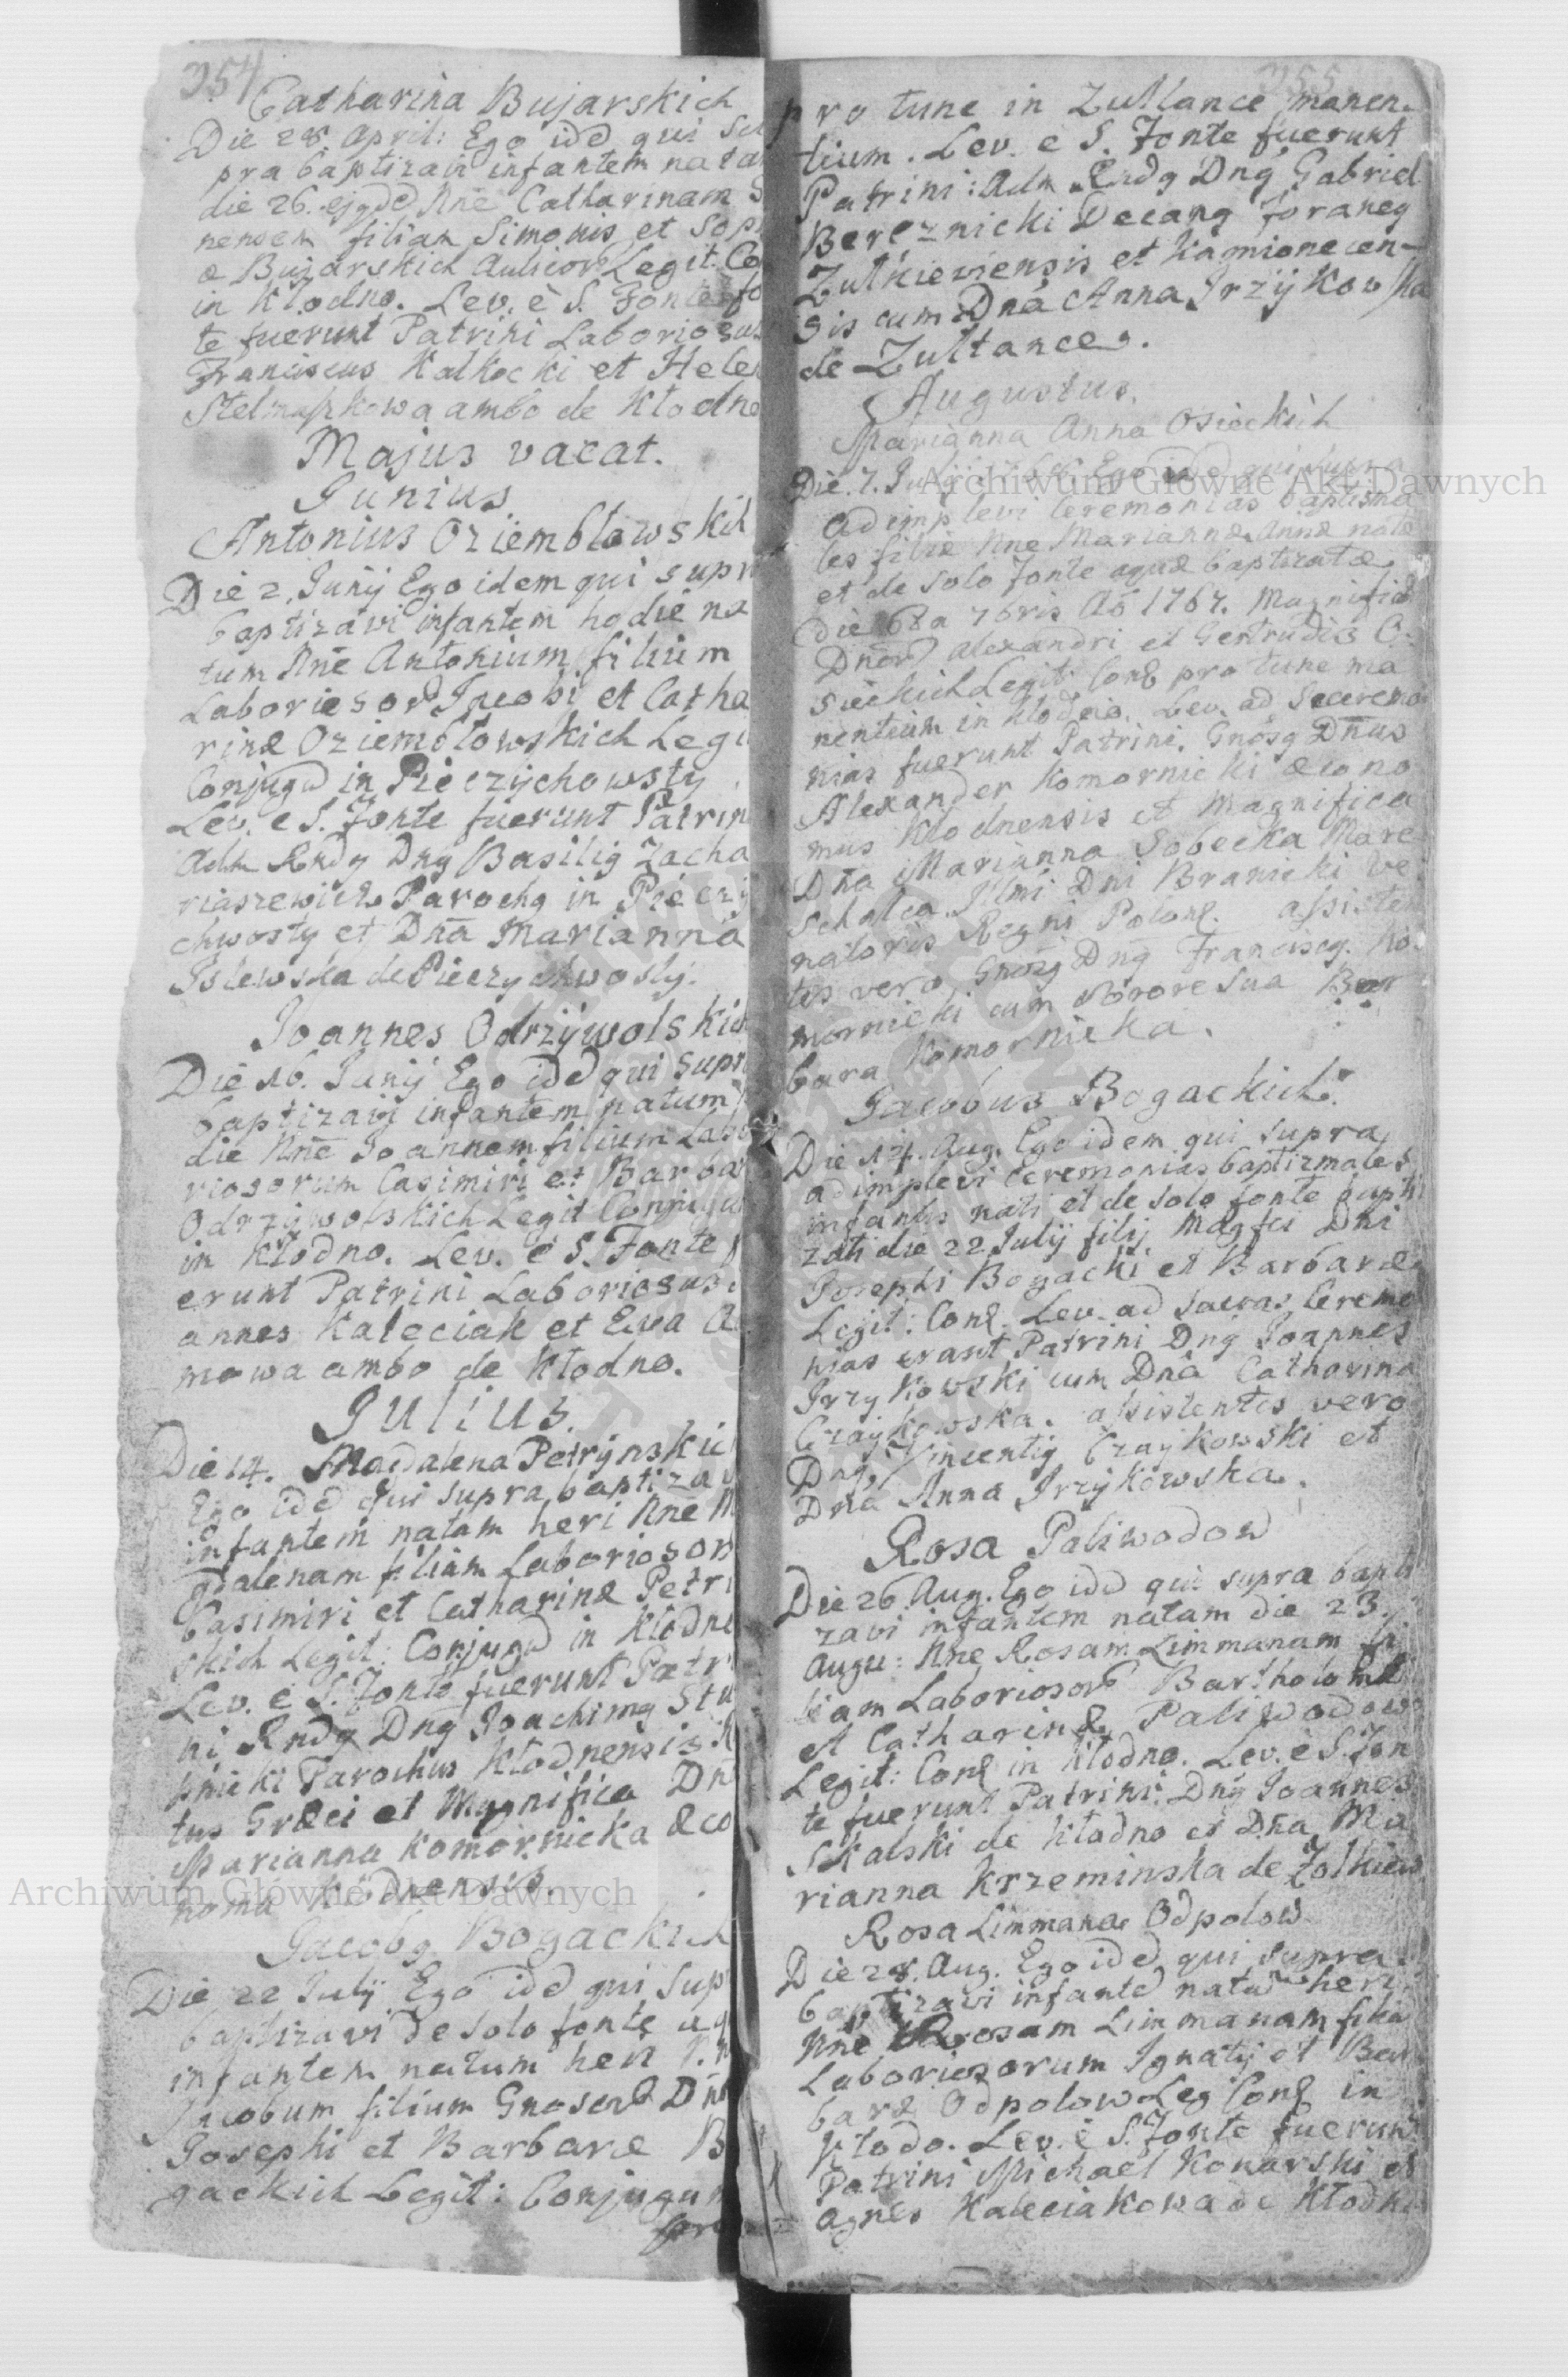 354
Catharina Bujarskich
Die 28. April: Ego idd qui su
pra baptizavi infantem natam
die 26. ejqdd Nne Catharinam
nensem filiam Simonis et Soph
æ Bujarskich Legit. Co
in Kłodno. Lev. è S. Fonte fo
te fuerunt Patrini Laboriosus
Franciscus Kalkocki et Helen
Stelmaszkowa ambo de Kłodno
Majus vacat.
Junius.
Antonius Oziembłowskich
Die 2. Junij Ego idem qui supr
baptizavi infantem hodie na
tum Nne Antonium filium
Laboriosord Jacobi et Catha
rinæ Oziembłowskich Legi
Conjugd in Pieczychowsty
Lev. e S. Fonte fuerunt Patrin
Adm Rndq Dnq Basiliq Zacha
riaszewicz Parochq in Pieczy
chwosty et Dña Marianna
Islewska de Pieczychwosty.
Joannes Odrzywolskich
Die 16. Junij Ego idd qui supr
baptizavi infantem natum
die Nne Joannem filium Labo
riosorum Casimiri et Barbar
Odrzywolskich Legit Conjugu
in Kłodno. Lev. è S. Fonte f
erunt Patrini Laboriosus
annes Kaleciak et Ewa A
mowa ambo de Kłodno.
Julius.
Die 14. Magdalena Petrynskic
Ego idd qui supra baptizav
infantem natam heri Nne M
gdalenam filiam Laboriosor
Casimiri et Catharinæ Petry
skich Legit: Conjugd in Kłodno
Lev. è S. Fonte fuerunt Patr
ni Rndq Dnq Joachimq Stu
pnicki Parochus Kłodnensis
tus Græci et Magnifica Dn
Marianna Komornicka æco
noma Kłodnensis.
Jacobq Bogackich
Die 22 Julij Ego idd qui sup
baptizavi de solo fonte aq
infantem natum heri
Jacobum filium Gnosord Dn
Josephi et Barbaræ B
gackich Legit: Conjugum
pro
355
pro tunc in Zułtance manen-
tium. Lev. e S. Fonte fuerunt
Patrini: Adm Rndq Dnq Gabriel
Bereznicki Decanq Foraneq
Zułkieviensis et Kamionecen-
sis cum Dnâ Anna Irzykowska
de Zułtance.
Augustus.
Marianna Anna Osieckich
Die. 7. Ego idd qui supra
adimplevi Ceremonias baptisma
les filiæ Nne Mariannæ Annæ natæ
et de solo Fonte aquæ baptizatæ
die 7bris Aõ 1767. Magnificd
Dnord Alexandri et Gertrudis O-
sieckich Legit: Conȩ pro tunc ma
nentium in Kłodno. Lev. ad S. ceremo
nias fuerunt Patrini. Gnosq Dnus
Alexander Komornicki æcono
mus Kłodnensis et Magnifica
Dña Marianna Sobecka Mare
schalca Illmi Dni Branicki Ve
natoris Regni Polonȩ. assisten
tes vero Gnosq Dnq Franciscq Ko
mornicki cum sorore sua Bar
bara Komornicka.
Jacobus Bogackich.
Die 14. Aug. Ego idem qui supra
adimplevi Ceremonias baptizmales
infantis nati et de solo fonte bapti
zati die 22 Julij filij Magfci Dni
Josephi Bogacki et Barbaræ
Legit: Conȩ. Lev. ad sacras Ceremo
nias erant Patrini Dnq Joannes
Irzykowski cum Dnâ Catharina
Czaykowska. assistentes vero
Dnq Vincentiq Czaykowski et
Dna Anna Irzykowska.
Rosa Paliwodow
Die 26 Aug. Ego idd qui supra bapti
zavi infantem natam die 23.
Augu: Nne Rosam Limmanam fi
liam Laboriosord Bartholomæi
et Catharinæ Paliwodow
Legit: Conȩ in Kłodno. Lev. è S. Fon
te fuerunt Patrini: Dnq Joannes
Skalski de Kłodno et Dña Ma
rianna Krzeminska de Zolkiew
Rosa Limmana Odpolow
Die 28. Aug. Ego idd qui supra
baptizavi infantd natã heri
Nne Rosam Limmanam filiã
Laboriosorum Ignatij et Bar
baræ Odpolow Leg Conȩ in
Kłodo. Lev. è S. Fonte fuerunt
Patrini Michaël Konarski et
Agnes Kaleciakowa de Kłodno
Archiwum Główne Akt Dawnych
Archiwum Główne Akt Dawnych